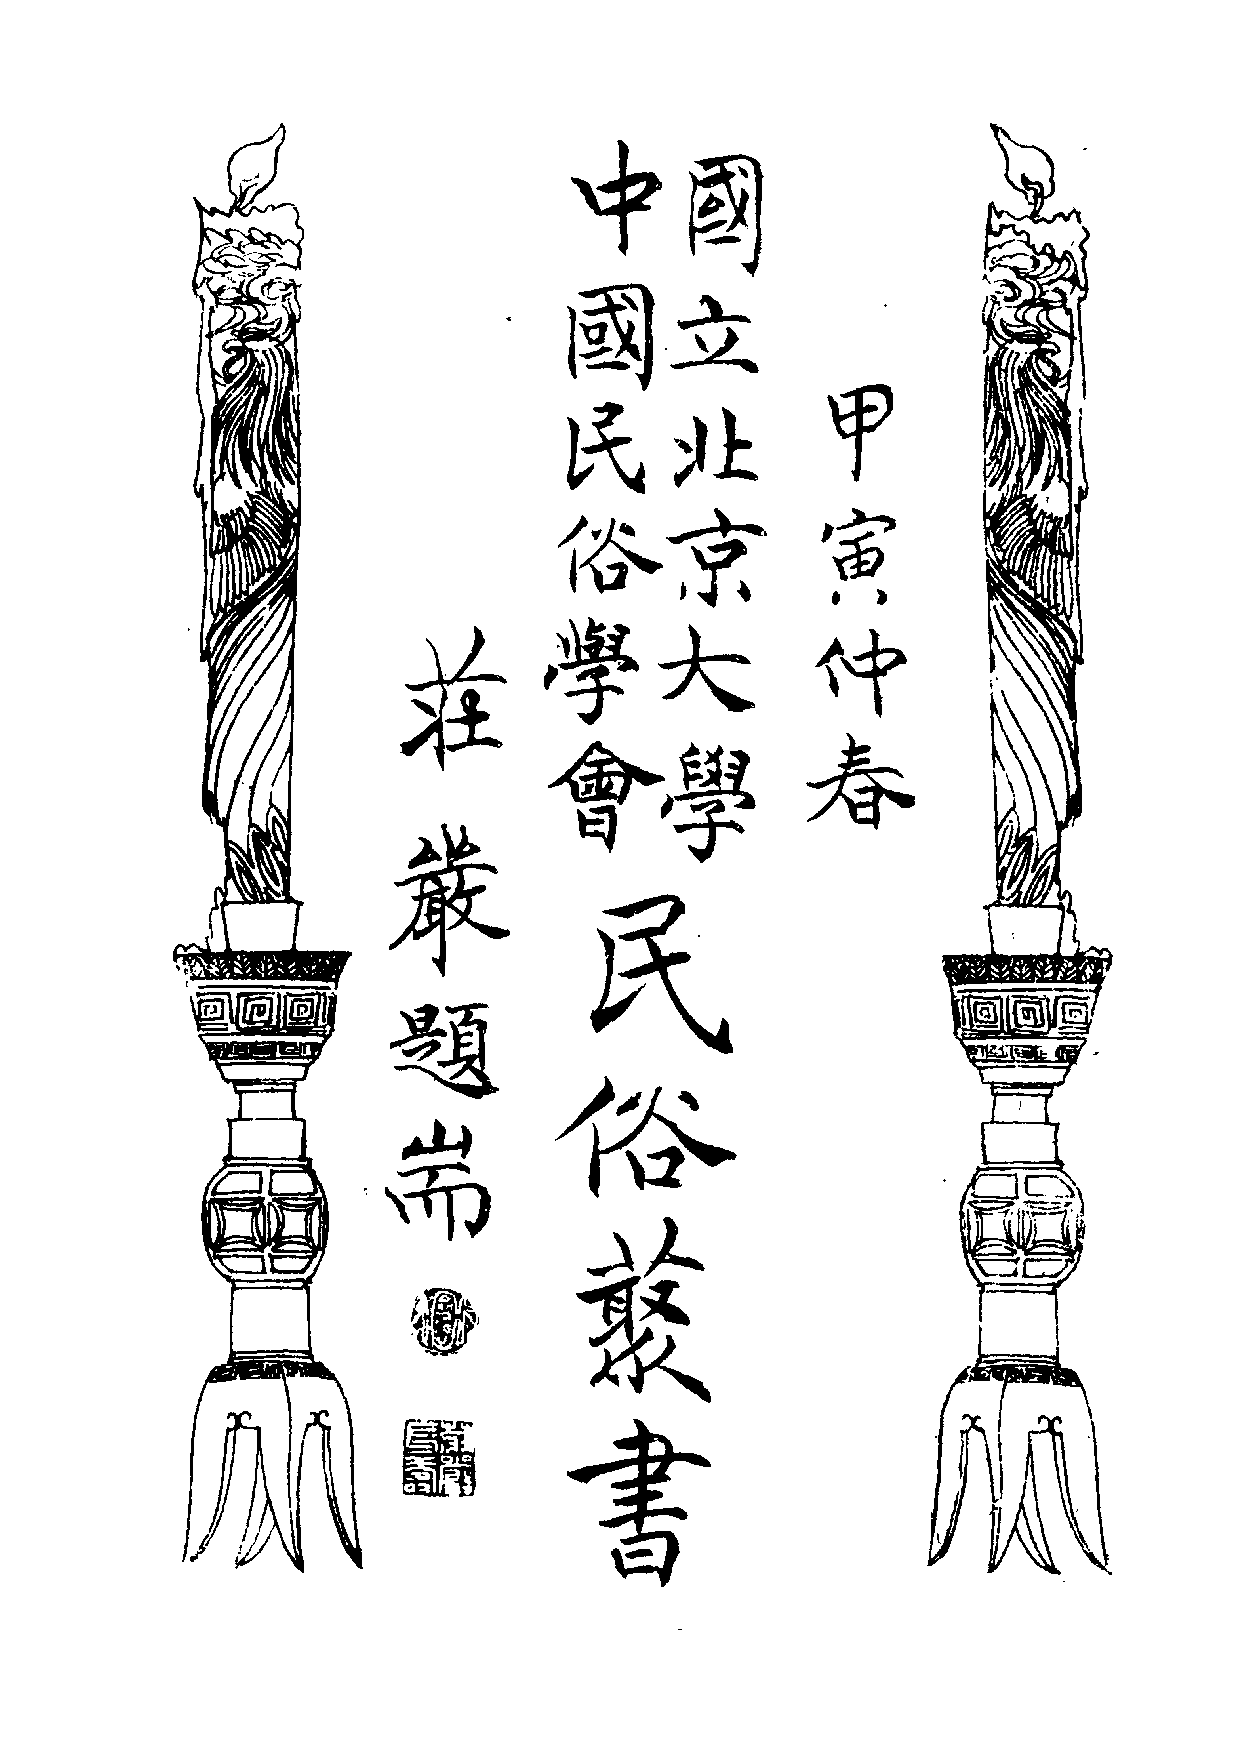 甲寅仲春
國立北京大學
中國民俗學會
民俗叢書
莊嚴題耑